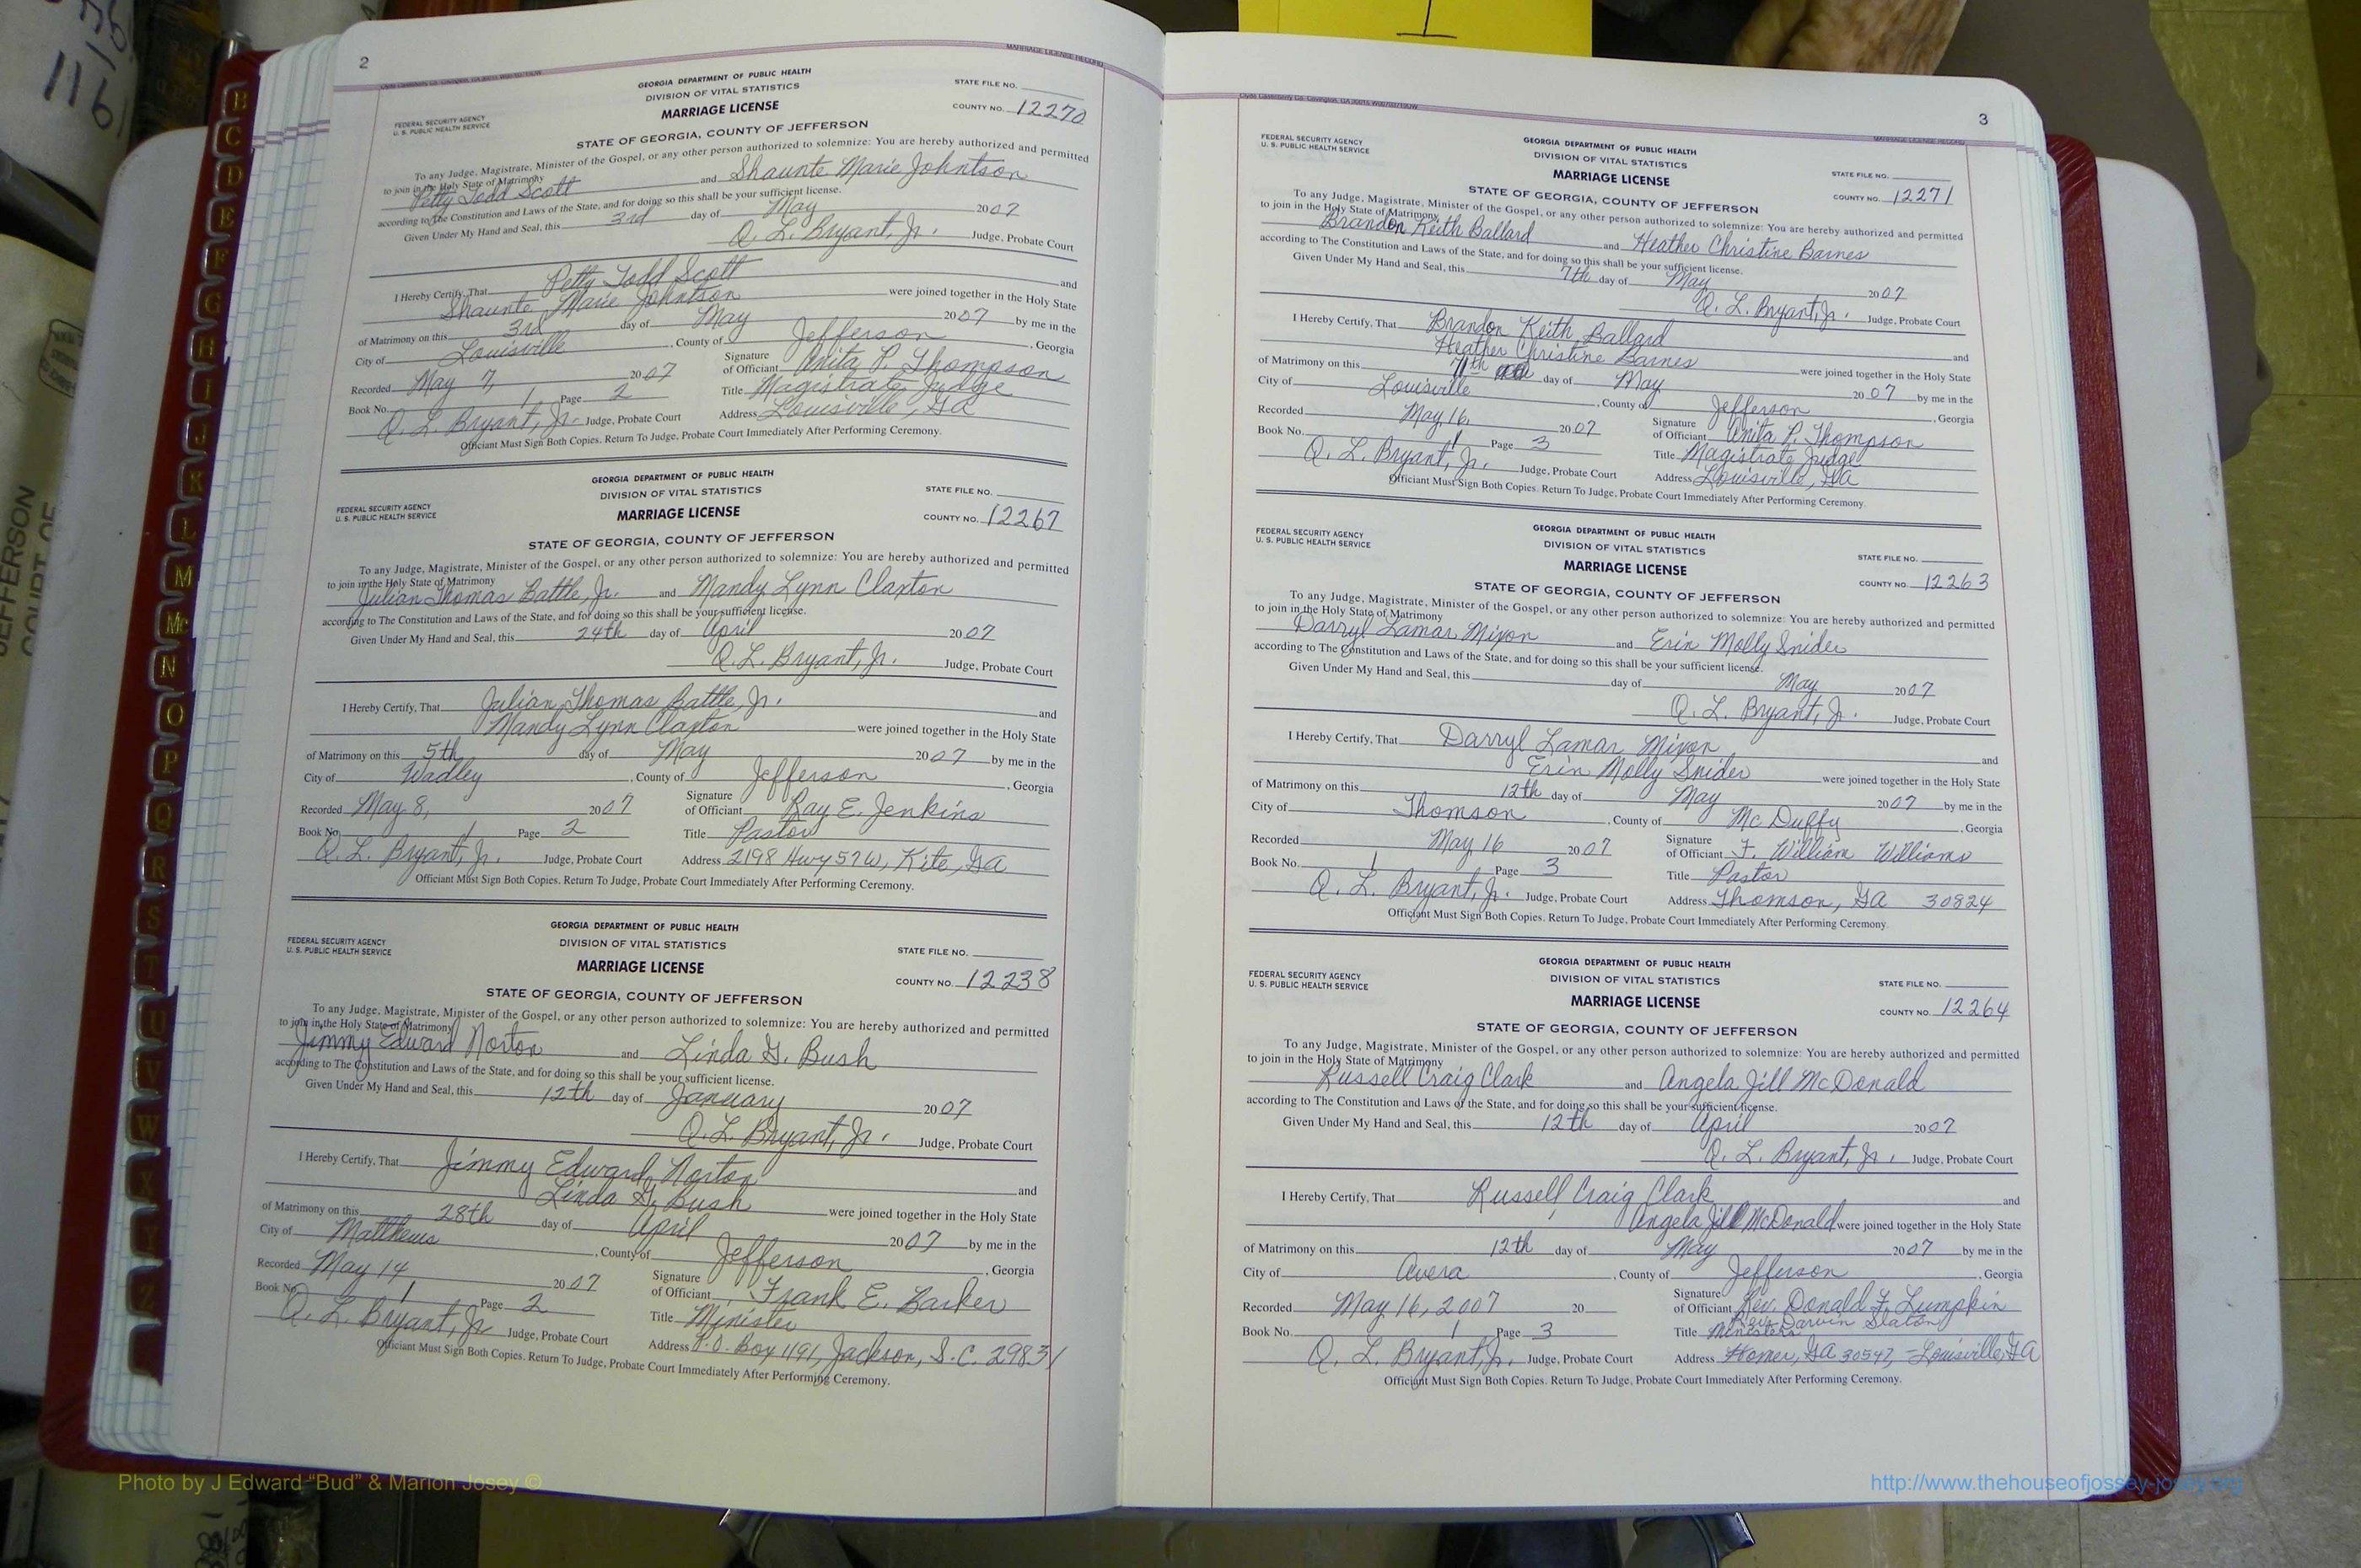 2
MARRIAGE LICENSE RECORD
GEORGIA DEPARTMENT OF PUBLIC HEALTH
DIVISION OF VITAL STATISTICS
MARRIAGE LICENSE
STATE FILE NO.
COUNTY NO. 12270
FEDERAL SECURITY AGENCY
U. S. PUBLIC HEALTH SERVICE
STATE OF GEORGIA, COUNTY OF JEFFERSON
To any Judge, Magistrate, Minister of the Gospel, or any other person authorized to solemnize: You are hereby authorized and permitted
to join in the Holy State of Matrimony
Petty Todd Scott and Shaunte Marie Johntson
according to The Constitution and Laws of the State, and for doing so this shall be your sufficient license.
Given Under My Hand and Seal, this 3rd day of May 2007
Q. L. Bryant, Jr. Judge, Probate Court
I Hereby Certify, That Petty Todd Scott and
Shaunte Marie Johntson were joined together in the Holy State
of Matrimony on this 3rd day of May 2007 by me in the
City of Louisville, County of Jefferson, Georgia
Recorded May 7, 2007 Signature of Officiant Anita P. Thompson
Book No. 1 Page 2 Title Magistrate Judge
Q. L. Bryant, Jr. Judge, Probate Court Address Louisville, GA
Officiant Must Sign Both Copies. Return To Judge, Probate Court Immediately After Performing Ceremony.
GEORGIA DEPARTMENT OF PUBLIC HEALTH
DIVISION OF VITAL STATISTICS
MARRIAGE LICENSE
STATE FILE NO.
COUNTY NO. 12267
FEDERAL SECURITY AGENCY
U. S. PUBLIC HEALTH SERVICE
STATE OF GEORGIA, COUNTY OF JEFFERSON
To any Judge, Magistrate, Minister of the Gospel, or any other person authorized to solemnize: You are hereby authorized and permitted
to join in the Holy State of Matrimony
Julian Thomas Battle, Jr. and Mandy Lynn Claxton
according to The Constitution and Laws of the State, and for doing so this shall be your sufficient license.
Given Under My Hand and Seal, this 24th day of April 2007
Q. L. Bryant, Jr. Judge, Probate Court
I Hereby Certify, That Julian Thomas Battle, Jr. and
Mandy Lynn Claxton were joined together in the Holy State
of Matrimony on this 5th day of May 2007 by me in the
City of Wadley, County of Jefferson, Georgia
Recorded May 8, 2007 Signature of Officiant Ray E. Jenkins
Book No. 1 Page 2 Title Pastor
Q. L. Bryant, Jr. Judge, Probate Court Address 2198 Hwy 57 W, Kite, GA
Officiant Must Sign Both Copies. Return To Judge, Probate Court Immediately After Performing Ceremony.
GEORGIA DEPARTMENT OF PUBLIC HEALTH
DIVISION OF VITAL STATISTICS
MARRIAGE LICENSE
STATE FILE NO.
COUNTY NO. 12238
FEDERAL SECURITY AGENCY
U. S. PUBLIC HEALTH SERVICE
STATE OF GEORGIA, COUNTY OF JEFFERSON
To any Judge, Magistrate, Minister of the Gospel, or any other person authorized to solemnize: You are hereby authorized and permitted
to join in the Holy State of Matrimony
Jimmy Edward Norton and Linda G. Bush
according to The Constitution and Laws of the State, and for doing so this shall be your sufficient license.
Given Under My Hand and Seal, this 12th day of January 2007
Q. L. Bryant, Jr. Judge, Probate Court
I Hereby Certify, That Jimmy Edward Norton and
Linda G. Bush were joined together in the Holy State
of Matrimony on this 28th day of April 2007 by me in the
City of Matthews, County of Jefferson, Georgia
Recorded May 14 2007 Signature of Officiant Frank E. Barker
Book No. 1 Page 2 Title Minister
Q. L. Bryant, Jr. Judge, Probate Court Address P.O. Box 1191, Jackson, S.C. 29831
Officiant Must Sign Both Copies. Return To Judge, Probate Court Immediately After Performing Ceremony.
3
MARRIAGE LICENSE RECORD
FEDERAL SECURITY AGENCY
U. S. PUBLIC HEALTH SERVICE
GEORGIA DEPARTMENT OF PUBLIC HEALTH
DIVISION OF VITAL STATISTICS
MARRIAGE LICENSE
STATE FILE NO.
COUNTY NO. 12271
STATE OF GEORGIA, COUNTY OF JEFFERSON
To any Judge, Magistrate, Minister of the Gospel, or any other person authorized to solemnize: You are hereby authorized and permitted
to join in the Holy State of Matrimony
Brandon Keith Ballard and Heather Christine Barnes
according to The Constitution and Laws of the State, and for doing so this shall be your sufficient license.
Given Under My Hand and Seal, this 7th day of May 2007
Q. L. Bryant, Jr. Judge, Probate Court
I Hereby Certify, That Brandon Keith Ballard and
Heather Christine Barnes were joined together in the Holy State
of Matrimony on this 7th day of May 2007 by me in the
City of Louisville, County of Jefferson, Georgia
Recorded May 16, 2007 Signature of Officiant Anita P. Thompson
Book No. 1 Page 3 Title Magistrate Judge
Q. L. Bryant, Jr. Judge, Probate Court Address Louisville, GA
Officiant Must Sign Both Copies. Return To Judge, Probate Court Immediately After Performing Ceremony.
FEDERAL SECURITY AGENCY
U. S. PUBLIC HEALTH SERVICE
GEORGIA DEPARTMENT OF PUBLIC HEALTH
DIVISION OF VITAL STATISTICS
MARRIAGE LICENSE
STATE FILE NO.
COUNTY NO. 12263
STATE OF GEORGIA, COUNTY OF JEFFERSON
To any Judge, Magistrate, Minister of the Gospel, or any other person authorized to solemnize: You are hereby authorized and permitted
to join in the Holy State of Matrimony
Darryl Lamar Mixon and Erin Molly Snider
according to The Constitution and Laws of the State, and for doing so this shall be your sufficient license.
Given Under My Hand and Seal, this day of May 2007
Q. L. Bryant, Jr. Judge, Probate Court
I Hereby Certify, That Darryl Lamar Mixon and
Erin Molly Snider were joined together in the Holy State
of Matrimony on this 12th day of May 2007 by me in the
City of Thomson, County of Mc Duffy, Georgia
Recorded May 16 2007 Signature of Officiant F. William Williams
Book No. 1 Page 3 Title Pastor
Q. L. Bryant, Jr. Judge, Probate Court Address Thomson, GA 30824
Officiant Must Sign Both Copies. Return To Judge, Probate Court Immediately After Performing Ceremony.
FEDERAL SECURITY AGENCY
U. S. PUBLIC HEALTH SERVICE
GEORGIA DEPARTMENT OF PUBLIC HEALTH
DIVISION OF VITAL STATISTICS
MARRIAGE LICENSE
STATE FILE NO.
COUNTY NO. 12264
STATE OF GEORGIA, COUNTY OF JEFFERSON
To any Judge, Magistrate, Minister of the Gospel, or any other person authorized to solemnize: You are hereby authorized and permitted
to join in the Holy State of Matrimony
Russell Craig Clark and Angela Jill McDonald
according to The Constitution and Laws of the State, and for doing so this shall be your sufficient license.
Given Under My Hand and Seal, this 12th day of April 2007
Q. L. Bryant, Jr. Judge, Probate Court
I Hereby Certify, That Russell Craig Clark and
Angela Jill McDonald were joined together in the Holy State
of Matrimony on this 12th day of May 2007 by me in the
City of Avera, County of Jefferson, Georgia
Recorded May 16, 2007 20 Signature of Officiant Rev. Donald F. Lumpkin
Rev. Darvin Slaton
Book No. 1 Page 3 Title Ministers
Q. L. Bryant, Jr. Judge, Probate Court Address Homer, GA 30547, - Louisville, GA
Officiant Must Sign Both Copies. Return To Judge, Probate Court Immediately After Performing Ceremony.
B
C
D
E
F
G
H
I
J
K
L
M
Mc
N
O
P
Q
R
S
T
U
V
W
X
Y
Z
Photo by J Edward “Bud” & Marion Josey ©
http://www.thehouseofjossey-josey.org